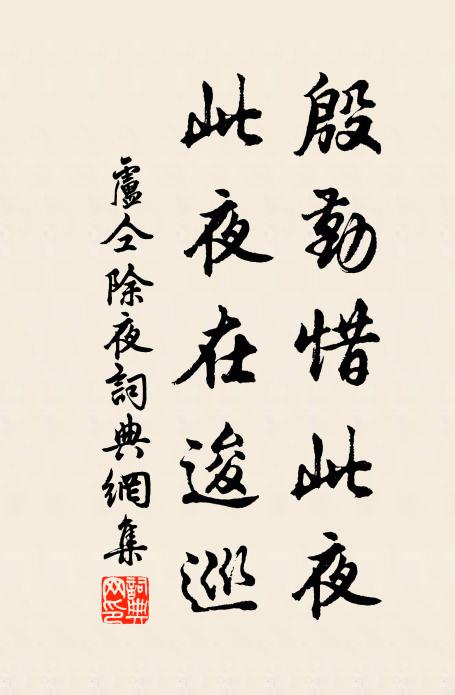 殷勤惜此夜
此夜在逡巡
盧仝除夜詞典網集
詞典
网印